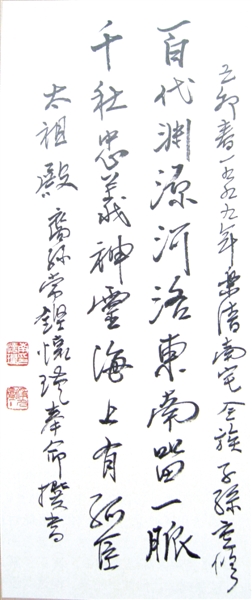 己卯春一九九九年南宅全族子孫重修
百代淵源河洛東南留一脈
千秋忠義神靈海上有孤臣
太祖殿 裔孫常懷奉命撰書